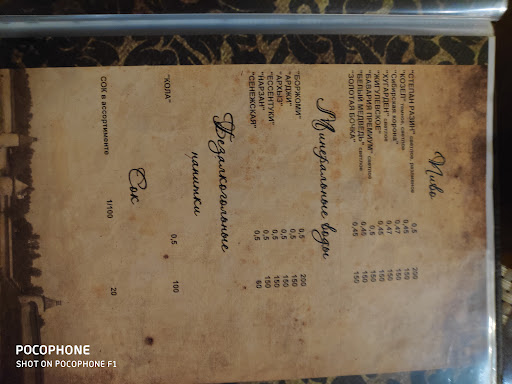 Пиво
"СТЕПАН РАЗИН" светлое, разливное 0,5 200
"КОЗЕЛ" темное, светлое 0,45 150
"Сибирская корона" 0,47 150
"ХУГАРДЕН" светлое 0,47 150
"ЖИГУЛЕВСКОЕ" 0,45 150
"БАВАРИЯ ПРЕМИУМ" светлое 0,5 150
"БЕЛЫЙ МЕДВЕДЬ" светлое 0,45 150
"ЗОЛОТАЯ БОЧКА" 0,45 150
Минеральные воды
"БОРЖОМИ" 0,5 200
"АРДЖИ" 0,5 150
"АРХЫЗ" 0,5 150
"ЕССЕНТУКИ" 0,5 150
"НАРЗАН" 0,5 150
"СЕНЕЖСКАЯ" 0,5 60
Безалкогольные
напитки
"КОЛА" 0,5 100
Сок
СОК в ассортименте 1/100 20
POCOPHONE
SHOT ON POCOPHONE F1